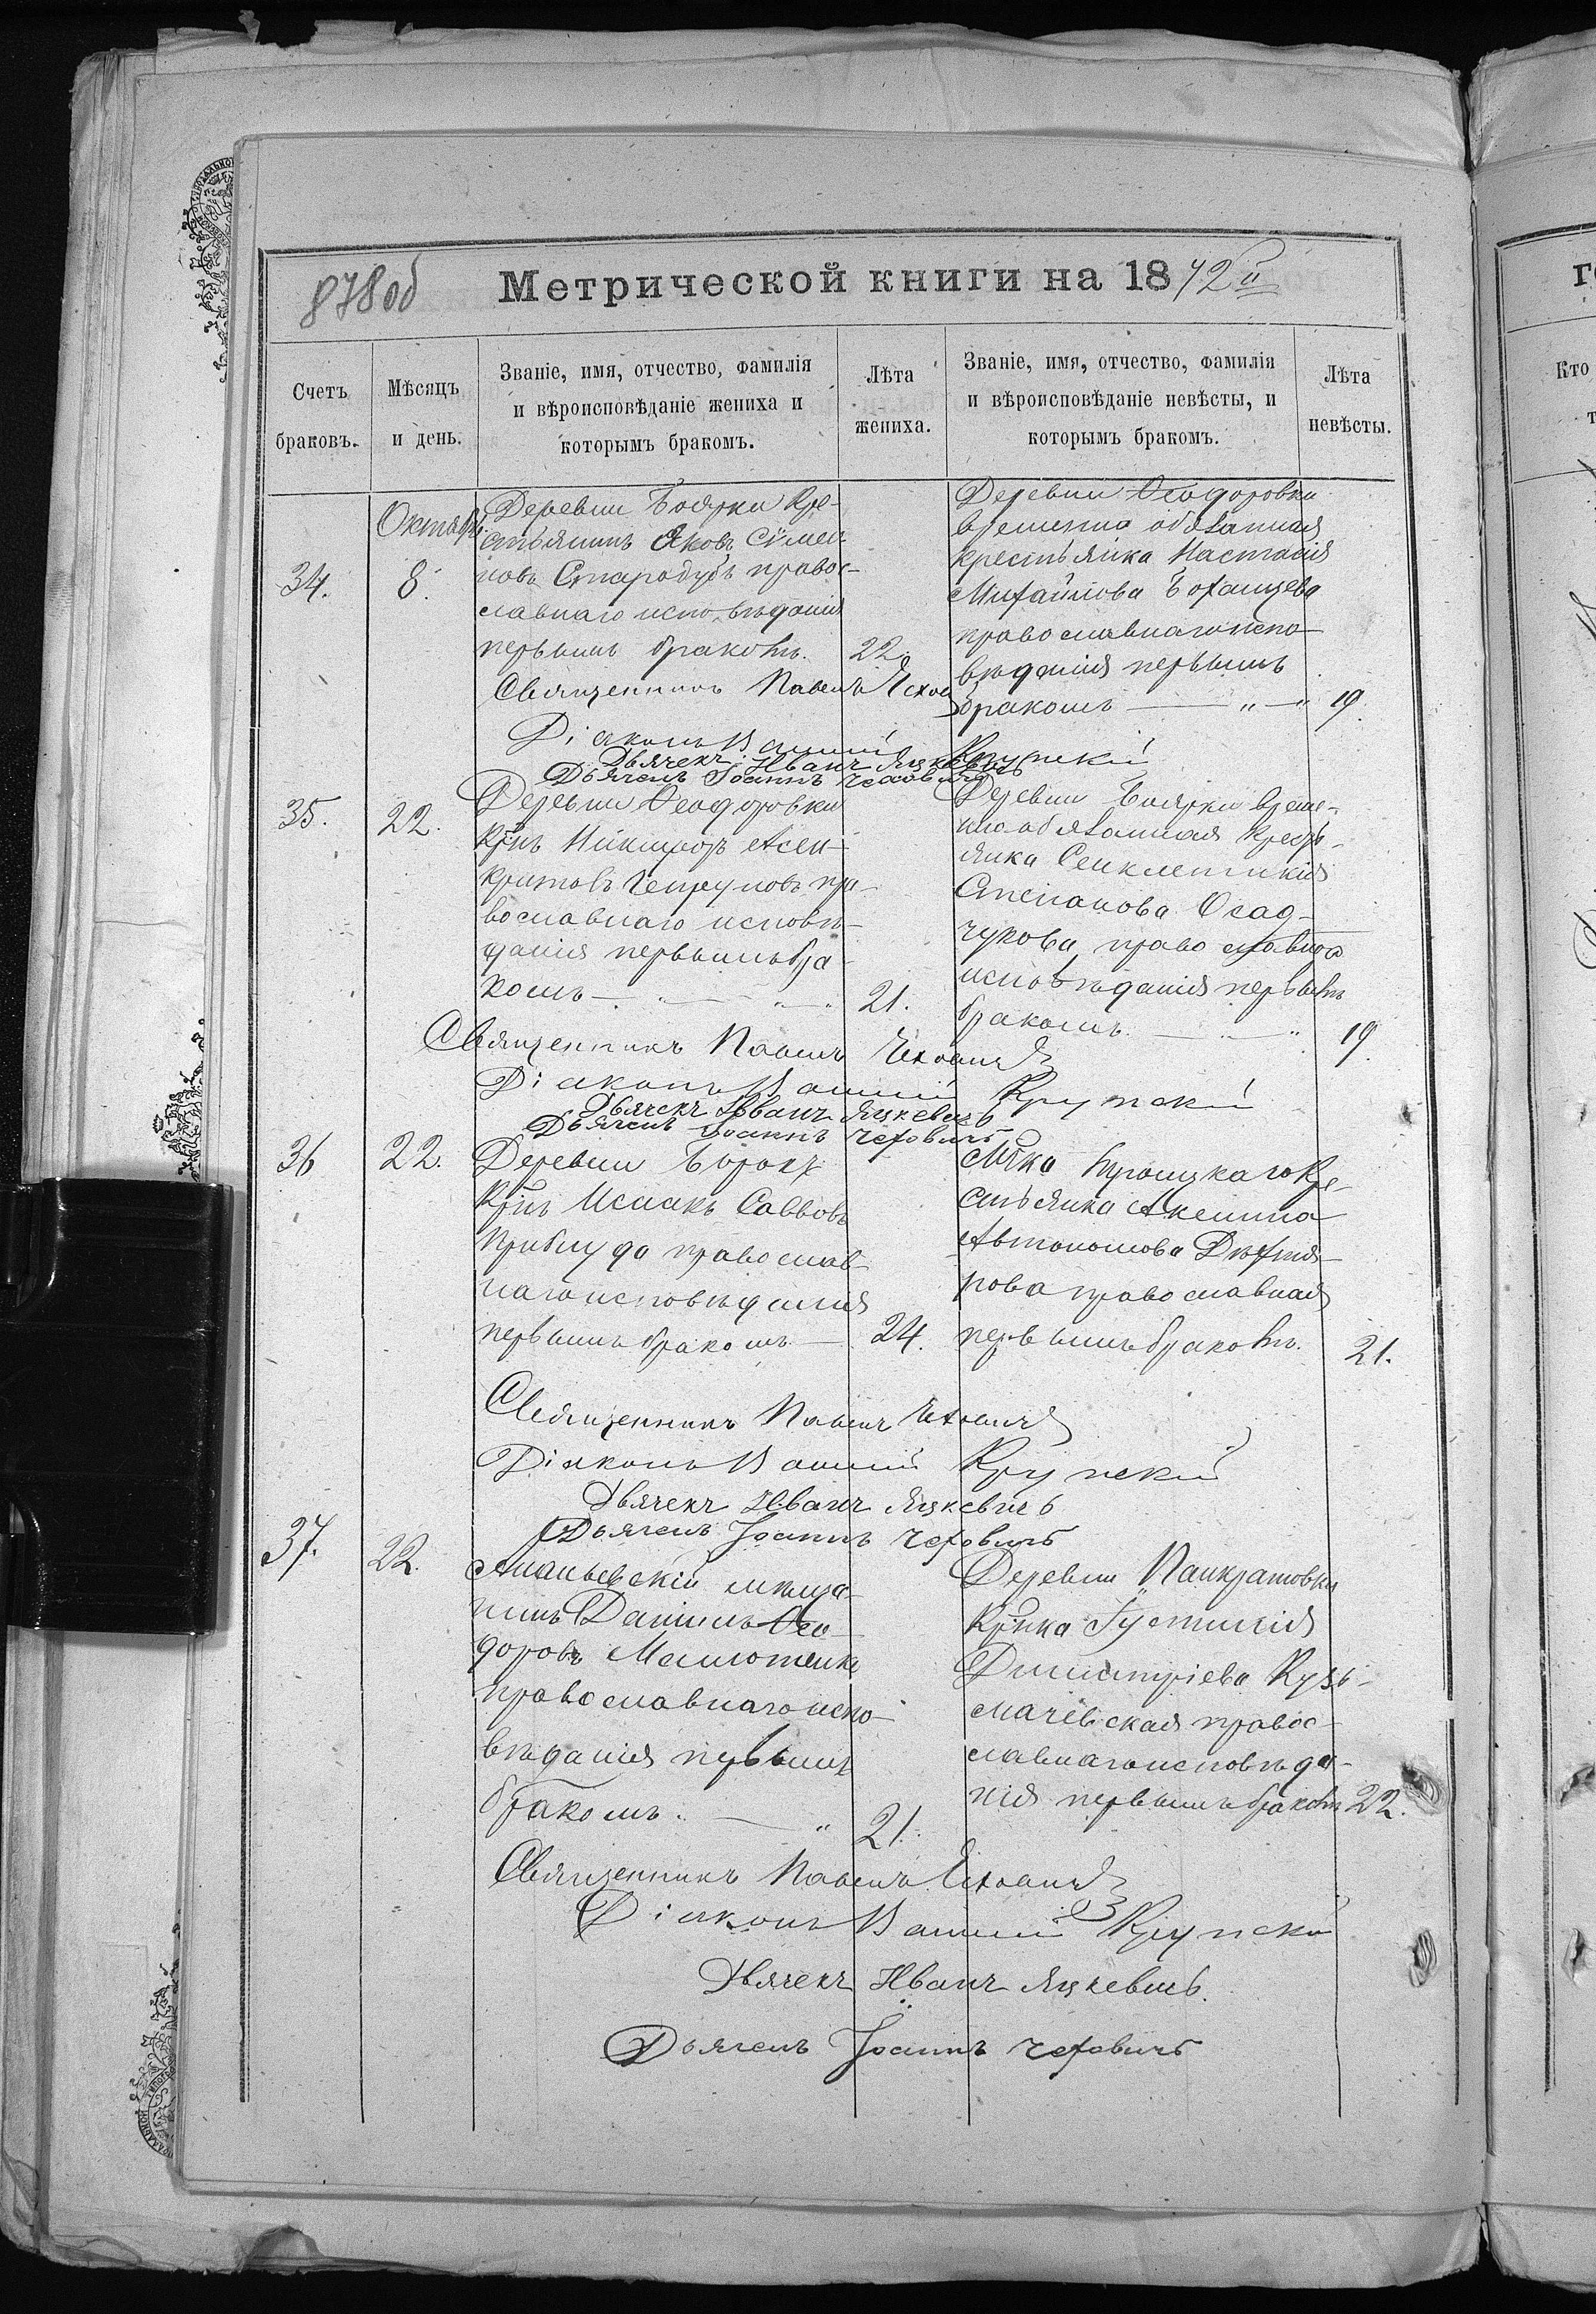 878об
Метрической книги на 1872й
Счетъ браковъ.
Мѣсяцъ и день.
Званіе, имя, отчество, фамилія
и вѣроисповѣданіе жениха и
которымъ бракомъ.
Лѣта жениха.
Званіе, имя, отчество, фамилія
и вѣроисповѣданіе невѣсты, и
которымъ бракомъ.
Лѣта невѣсты.
34.
Октябрь
8.
Деревни Боярки Кре-
стьянинъ Яковъ Сѵмео-
новъ Стародубъ правос-
лавнаго исповѣданія
первымъ бракомъ.
22.
Деревни Ѳеодоровки
временно обязанная
крестьянка Настасія
Михайлова
православнаго испо-
вѣданія первымъ
бракомъ — „ — „
19.
Священникъ Павелъ
Діаконъ Крупскій
Дьячекъ Иванъ Яцкевичъ
Дьячекъ Іоаннъ Чеховичъ
35.
22.
Деревни Ѳеодоровки
Крнъ Никифоръ Асен-
критовъ пра-
вославнаго исповѣ-
данія первымъ бра-
комъ — „ — „
21.
Деревни Боярки време-
нно обязанная кресть-
янка Сенклетикія
Степанова Осад-
чукова православнаго
исповѣданія первымъ
бракомъ — „
19.
Священникъ Павелъ
Діаконъ Крупскій
Дьячекъ Иванъ Яцкевичъ
Дьячекъ Іоаннъ Чеховичъ
36
22.
Деревни
Крнъ Исаакъ Саввовъ
Приблуда православ-
наго исповѣданія
первымъ бракомъ —
24.
Мѣка Троицкаго Кре-
стьянка Акелина
Автономова
православная
первымъ бракомъ.
21.
Священникъ Павелъ
Діаконъ Крупскій
Дьячекъ Иванъ Яцкевичъ
Дьячекъ Іоаннъ Чеховичъ
37.
22.
Ананьевскій мѣща-
нинъ Даніилъ Ѳео-
доровъ
православнаго испо-
вѣданія первымъ
бракомъ. — „
21.
Деревни Панкратовки
Крнка Іустинія
Димитріева Кузь-
мачевская правос-
лавнаго исповѣда-
нія первымъ бракомъ
22.
Священникъ Павелъ
Діаконъ Крупскій
Дьячекъ Иванъ Яцкевичъ.
Дьячекъ Іоаннъ Чеховичъ
Кто